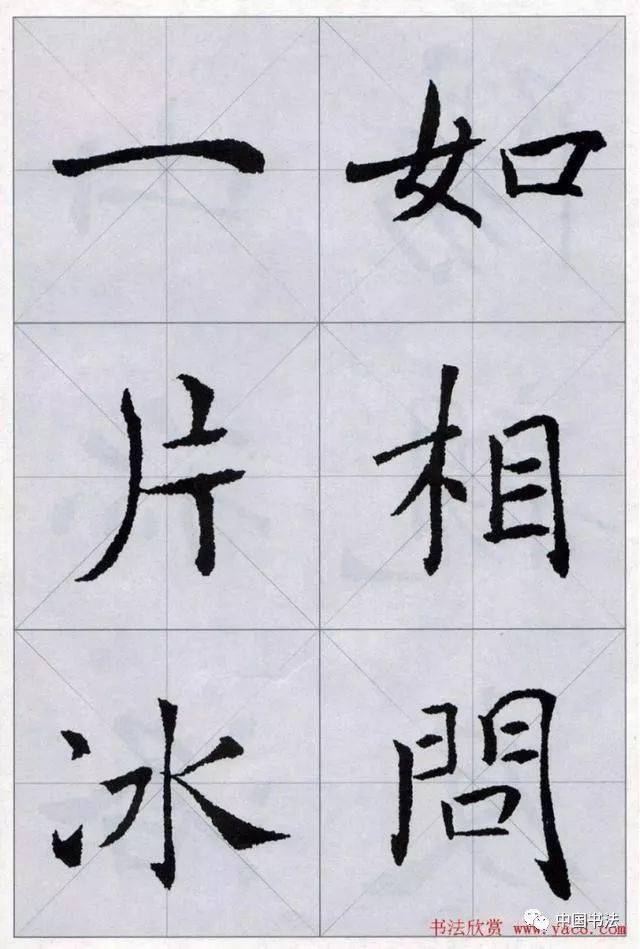 如相問
一片冰
中国书法
书法欣赏 www.yac8.com